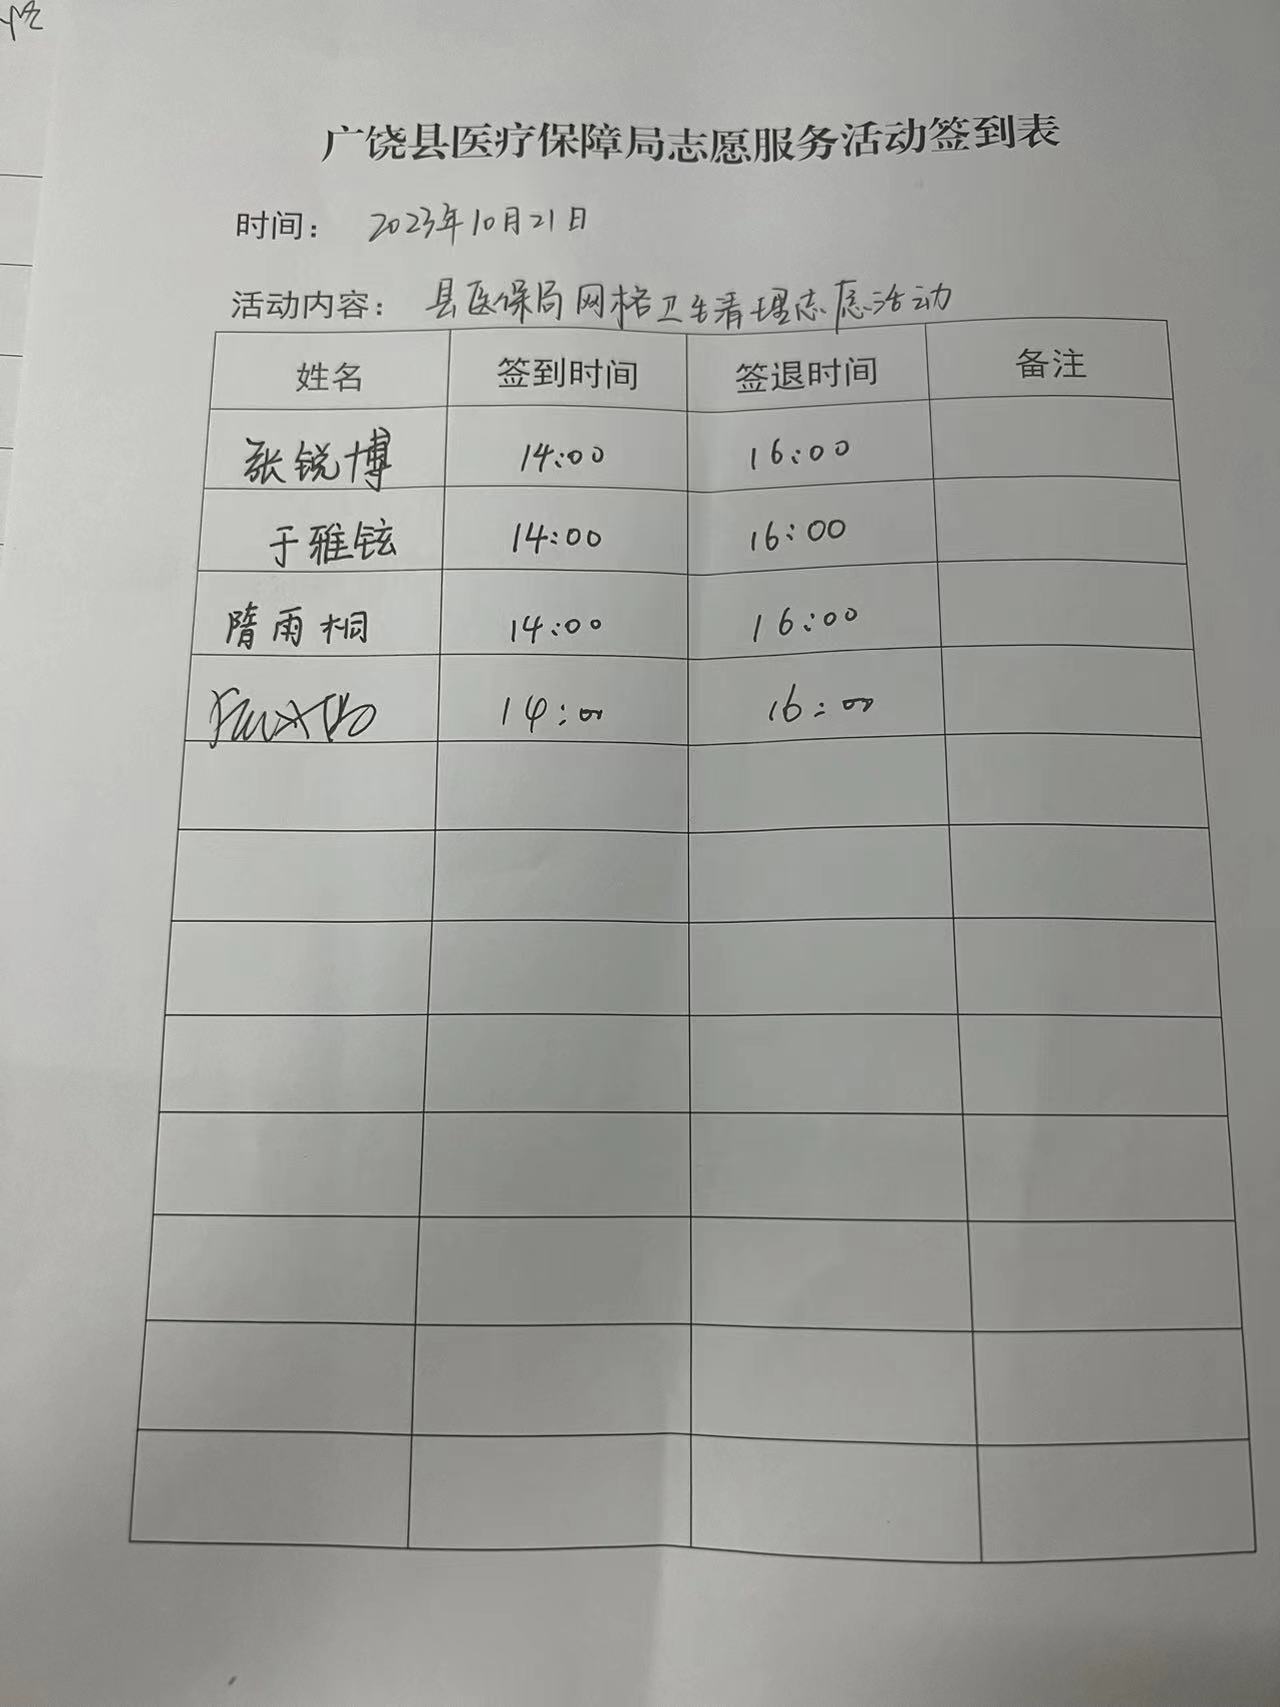 广饶县医疗保障局志愿服务活动签到表
时间： 2023年10月21日
活动内容： 县医保局网格卫生清理志愿活动
姓名 签到时间 签退时间 备注
张锐博 14:00 16:00
于雅铉 14:00 16:00
隋雨桐 14:00 16:00
14:00 16:00